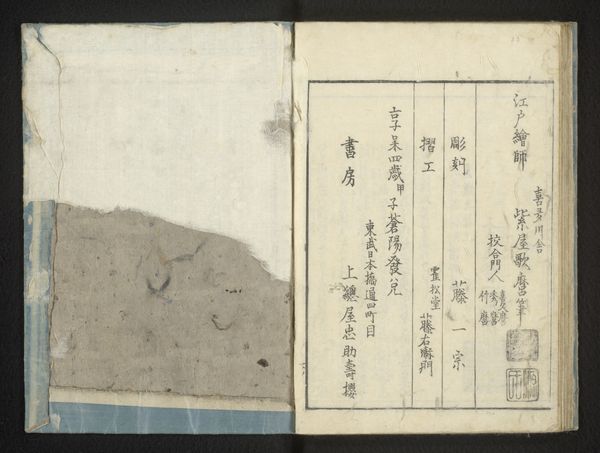 江戸繪師 喜多川舎 紫屋歌麿筆
校合門人 喜久麿 秀麿 竹麿
彫刻 藤一宗
摺工 霍松堂 藤右衛門
享和四歳甲子蒼陽發兌
東武日本橋通四町目
書房 上總屋忠助壽櫻